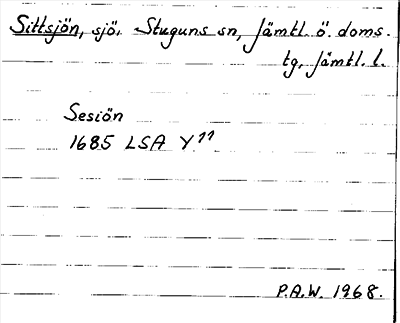 Sittsjön, sjö. Stuguns sn, Jämtl. ö. doms.
tg, Jämtl. l.
Sesiön
1685 LSA Y 11
P.A.W. 1968.